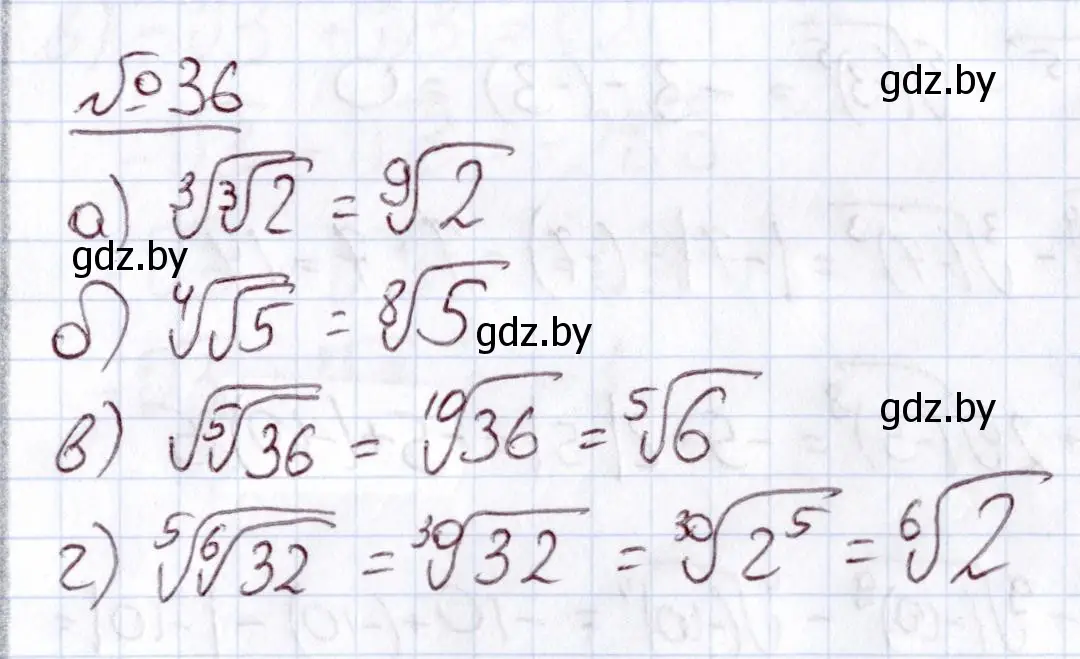 № 36
gdz.by
а) ∛(∛2) = ⁹√2
gdz.by
б) ⁴√(√5) = ⁸√5
gdz.by
в) √(⁵√36) = ¹⁰√36 = ⁵√6
gdz.by
г) ⁵√(⁶√32) = ³⁰√32 = ³⁰√(2⁵) = ⁶√2